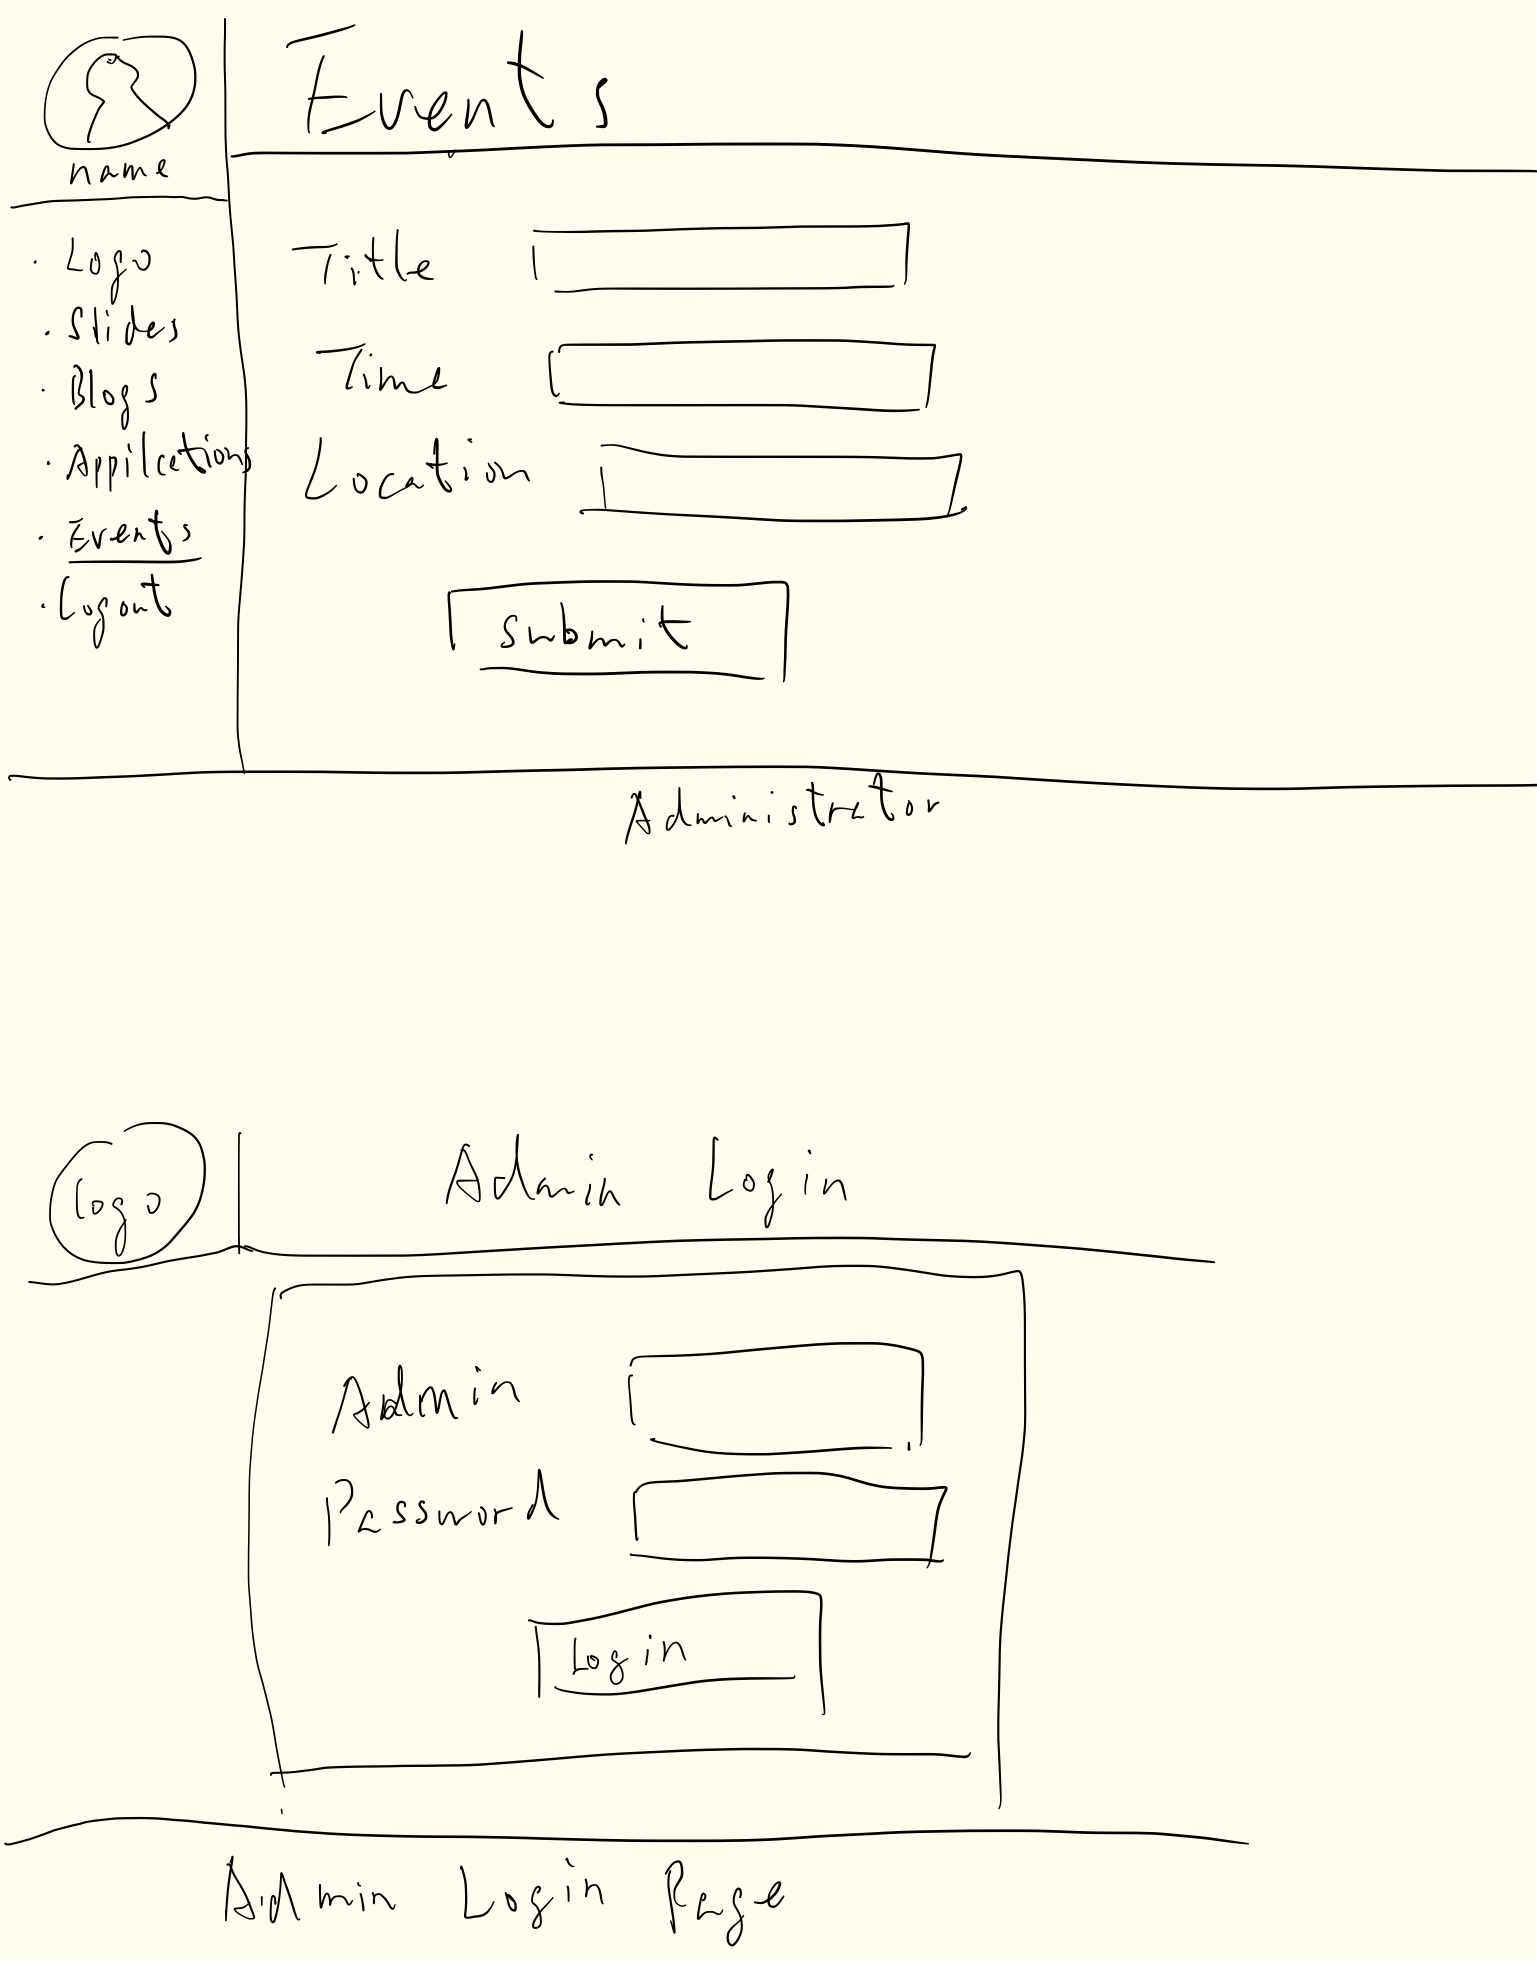 Events
name
· Logo
· Slides
· Blogs
· Appilcetions
· Events
· Logout
Title
Time
Location
Submit
Administrator
logo
Admin Login
Admin
Password
Login
Admin Login Page